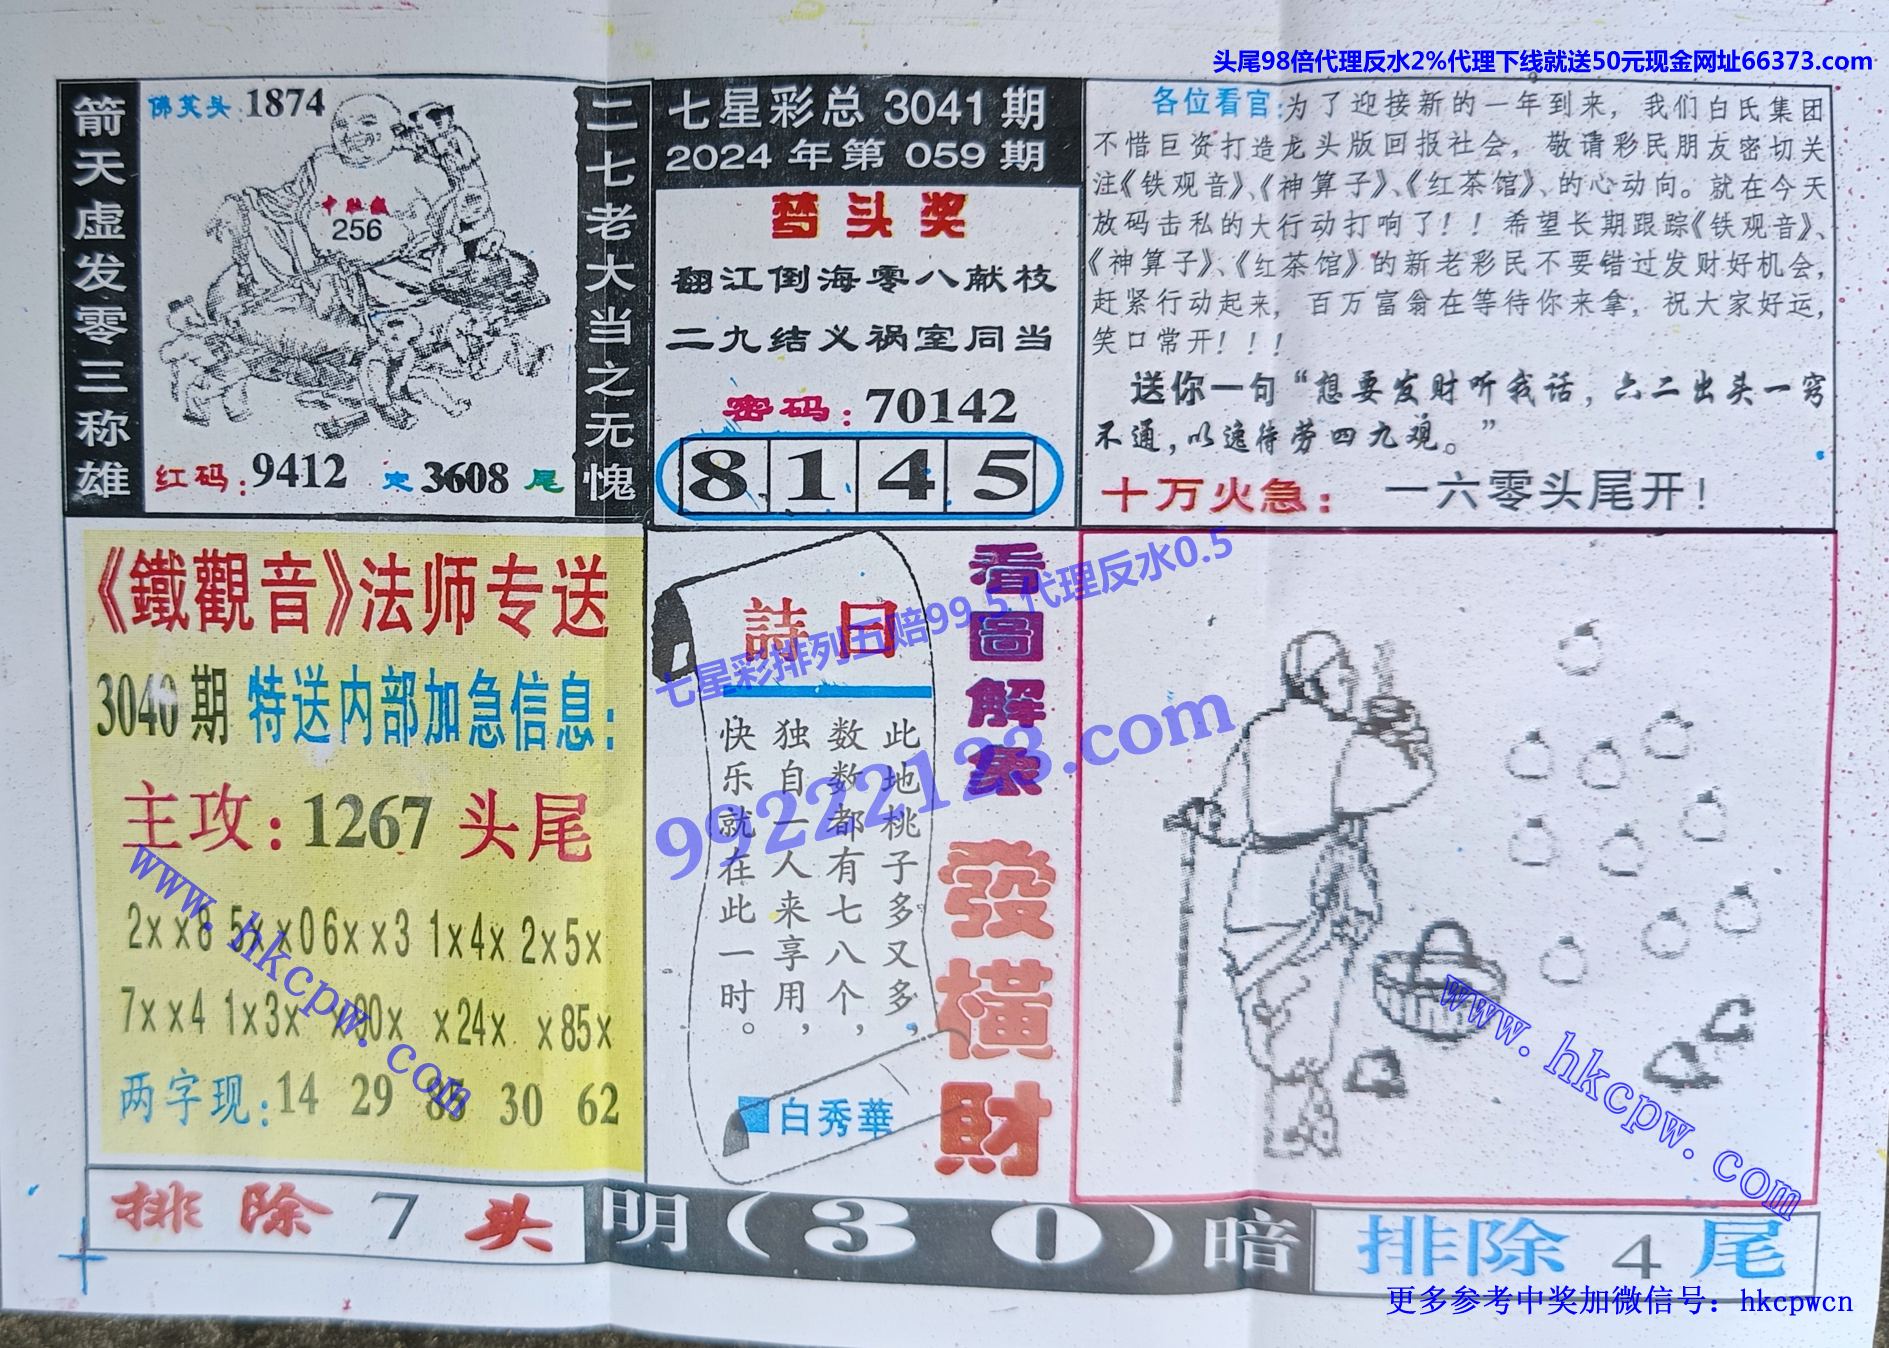 头尾98倍代理反水2%代理下线就送50元现金网址66373.com
箭天虚发零三称雄
佛笑头 1874
256
红码：9412 定 3608 尾
二七老大当之无愧
七星彩总 3041 期
2024 年第 059 期
梦头奖
翻江倒海零八献枝
二九结义祸室同当
密码：70142
8 1 4 5
各位看官：为了迎接新的一年到来，我们白氏集团
不惜巨资打造龙头版回报社会，敬请彩民朋友密切关
注《铁观音》、《神算子》、《红茶馆》、的心动向。就在今天
放码击私的大行动打响了！！希望长期跟踪《铁观音》、
《神算子》、《红茶馆》的新老彩民不要错过发财好机会，
赶紧行动起来，百万富翁在等待你来拿，祝大家好运，
笑口常开！！！
送你一句“想要发财听我话，六二出头一窍
不通，以逸待劳四九观。”
十万火急：一六零头尾开！
《鐵觀音》法师专送
3040期 特送内部加急信息：
主攻：1267 头尾
2xx8 5xx0 6xx3 1x4x 2x5x
7xx4 1x3x x00x x24x x85x
两字现：14 29 85 30 62
詩曰
此地桃子多又多，
数数都有七八个，
独自一人来享用，
快乐就在此一时。
白秀華
看圖解象
發橫財
七星彩排列五赔99.5 代理反水0.5
99222123.com
www.hkcpw.com
www.hkcpw.com
排除 7 头
明（30）暗
排除 4 尾
更多参考中奖加微信号：hkcpwcn